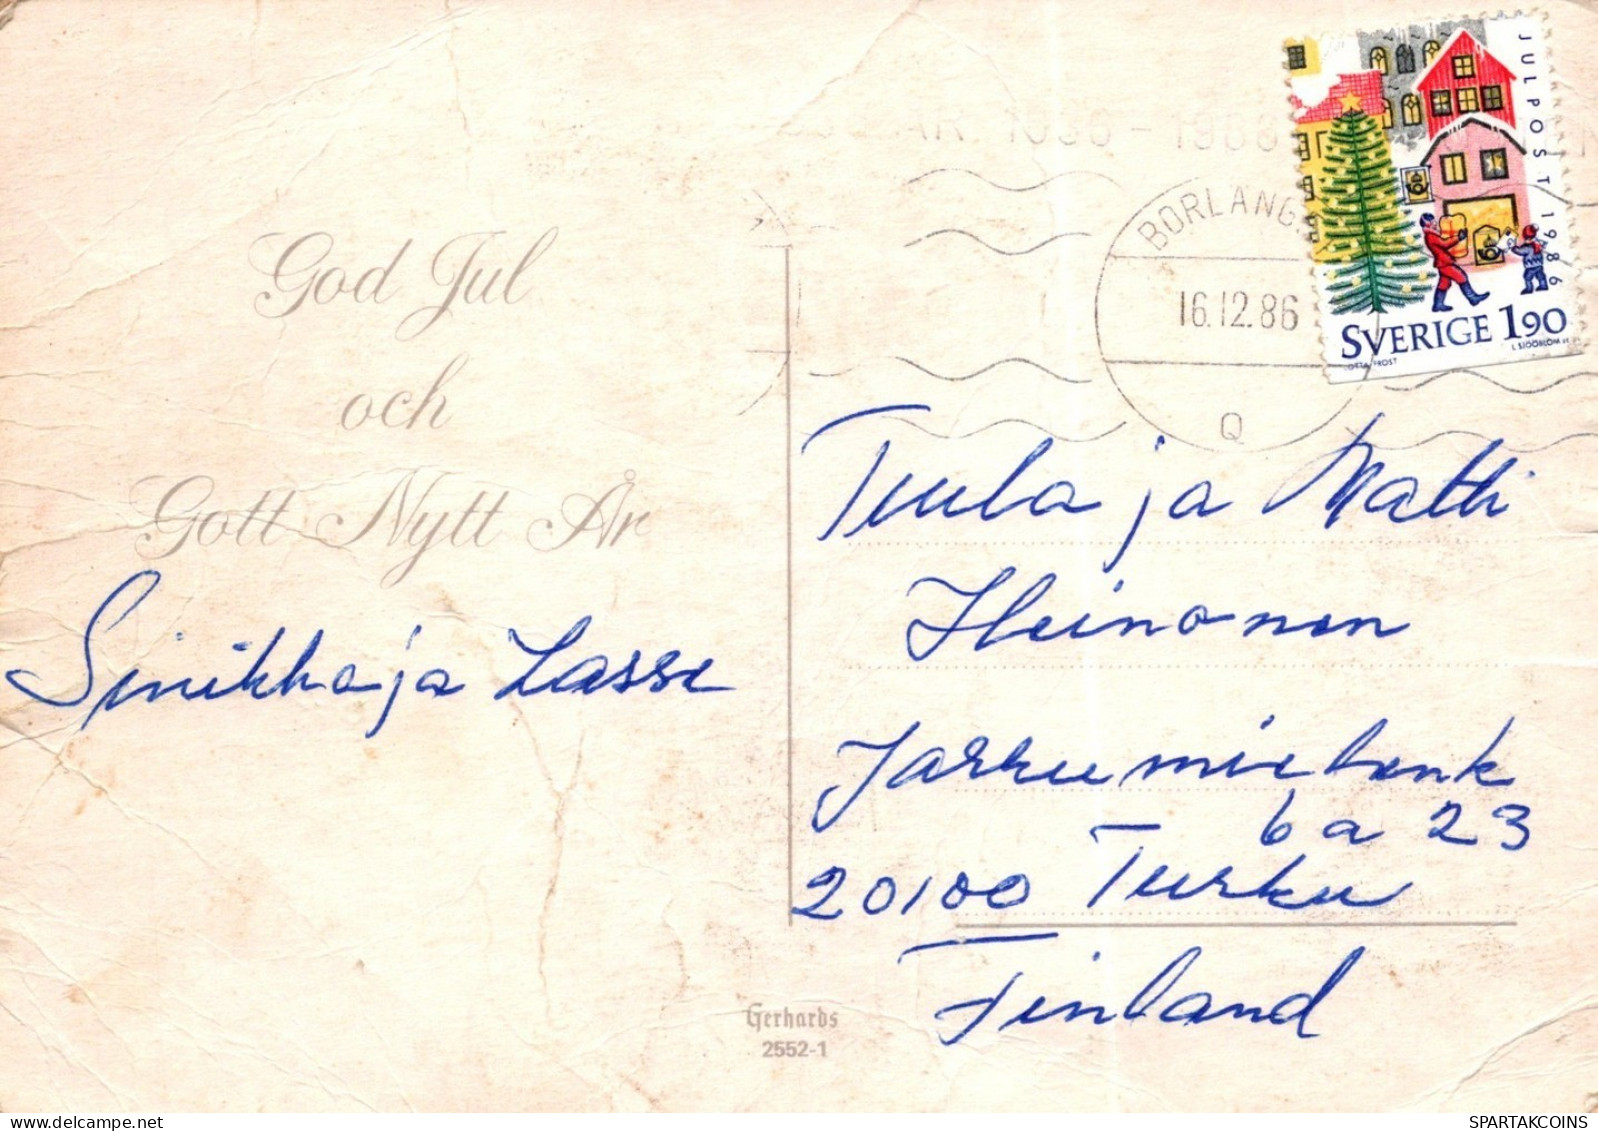 God Jul
och
Gott Nytt År
Sinikka ja Lasse
JULPOST 1986
SVERIGE 1.90
L SJÖÖBLOM
BORLÄNGE
16.12.86
Q
Tuula ja Matti
Heinonen
Jarrumiehenk
6 a 23
20100 Turku
Finland
Gerhards
2552-1
SPARTAKCOINS